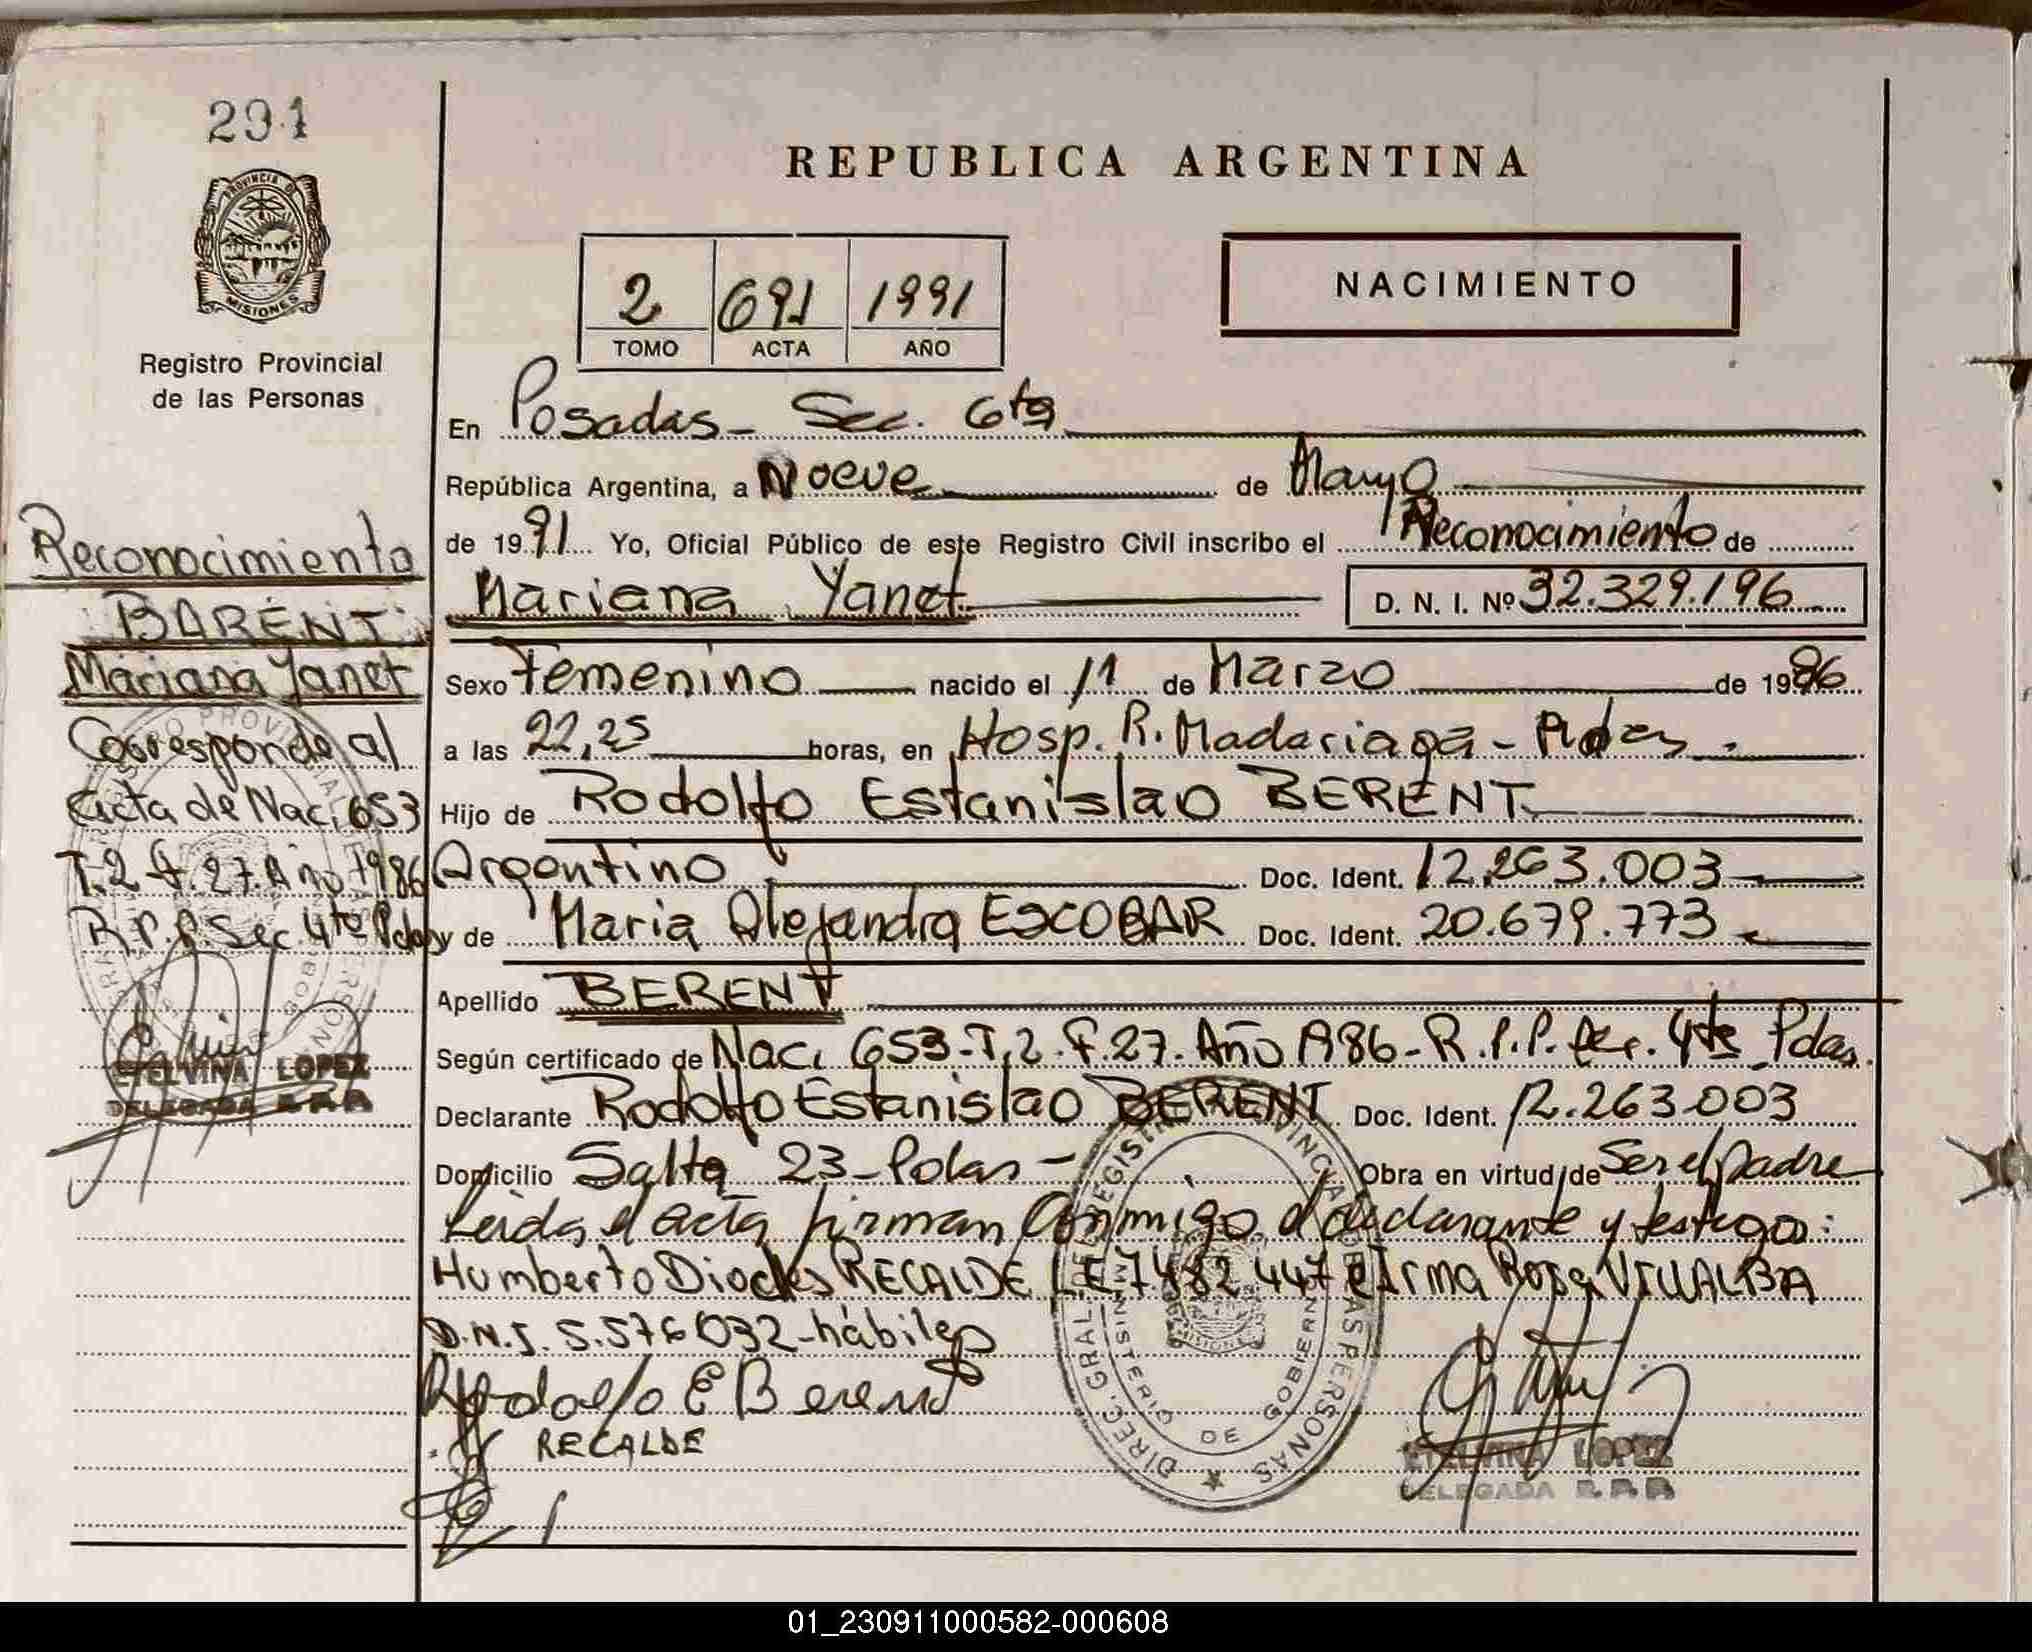 291
PROVINCIA DE
MISIONES
Registro Provincial
de las Personas
REPUBLICA ARGENTINA
2 691 1991
TOMO ACTA AÑO
NACIMIENTO
En Posadas - Sec. 6ta
República Argentina, a Nueve de Mayo
de 1991 Yo, Oficial Público de este Registro Civil inscribo el Reconocimiento de
Mariana Yanet D. N. I. Nº 32.329.196
Sexo Femenino nacido el 11 de Marzo de 1986
a las 22,25 horas, en Hosp. R. Madariaga - Pdas.
Hijo de Rodolfo Estanislao BERENT
Argentino Doc. Ident. 12.263.003
y de Maria Alejandra ESCOBAR Doc. Ident. 20.679.773
Apellido BERENT
Según certificado de Nac. 653 - T. 2 - F. 27 - Año 1986 - R.P.P. Sec. 4ta Pdas.
Declarante Rodolfo Estanislao BERENT Doc. Ident. 12.263.003
Domicilio Salta 23 - Pdas - Obra en virtud de Ser el padre
Leida el acta firman conmigo el declarante y testigos:
Humberto Diocles RECALDE L.E. 7.482.447 e Irma Rosa VILLALBA
D.N.I. 5.576.032 - hábiles
Rodolfo E Berent
RECALDE
ETELVINA LOPEZ
DELEGADA R.P.P.
DIREC. GRAL. DE REGISTRO PROVINCIAL DE LAS PERSONAS
MINISTERIO DE GOBIERNO
MISIONES
Reconocimiento
BARENT
Mariana Yanet
Corresponde al
Acta de Nac. 653
T. 2 F. 27. Año 1986
R.P.P. Sec. 4ta Pdas
ETELVINA LOPEZ
DELEGADA R.P.P.
01_230911000582-000608